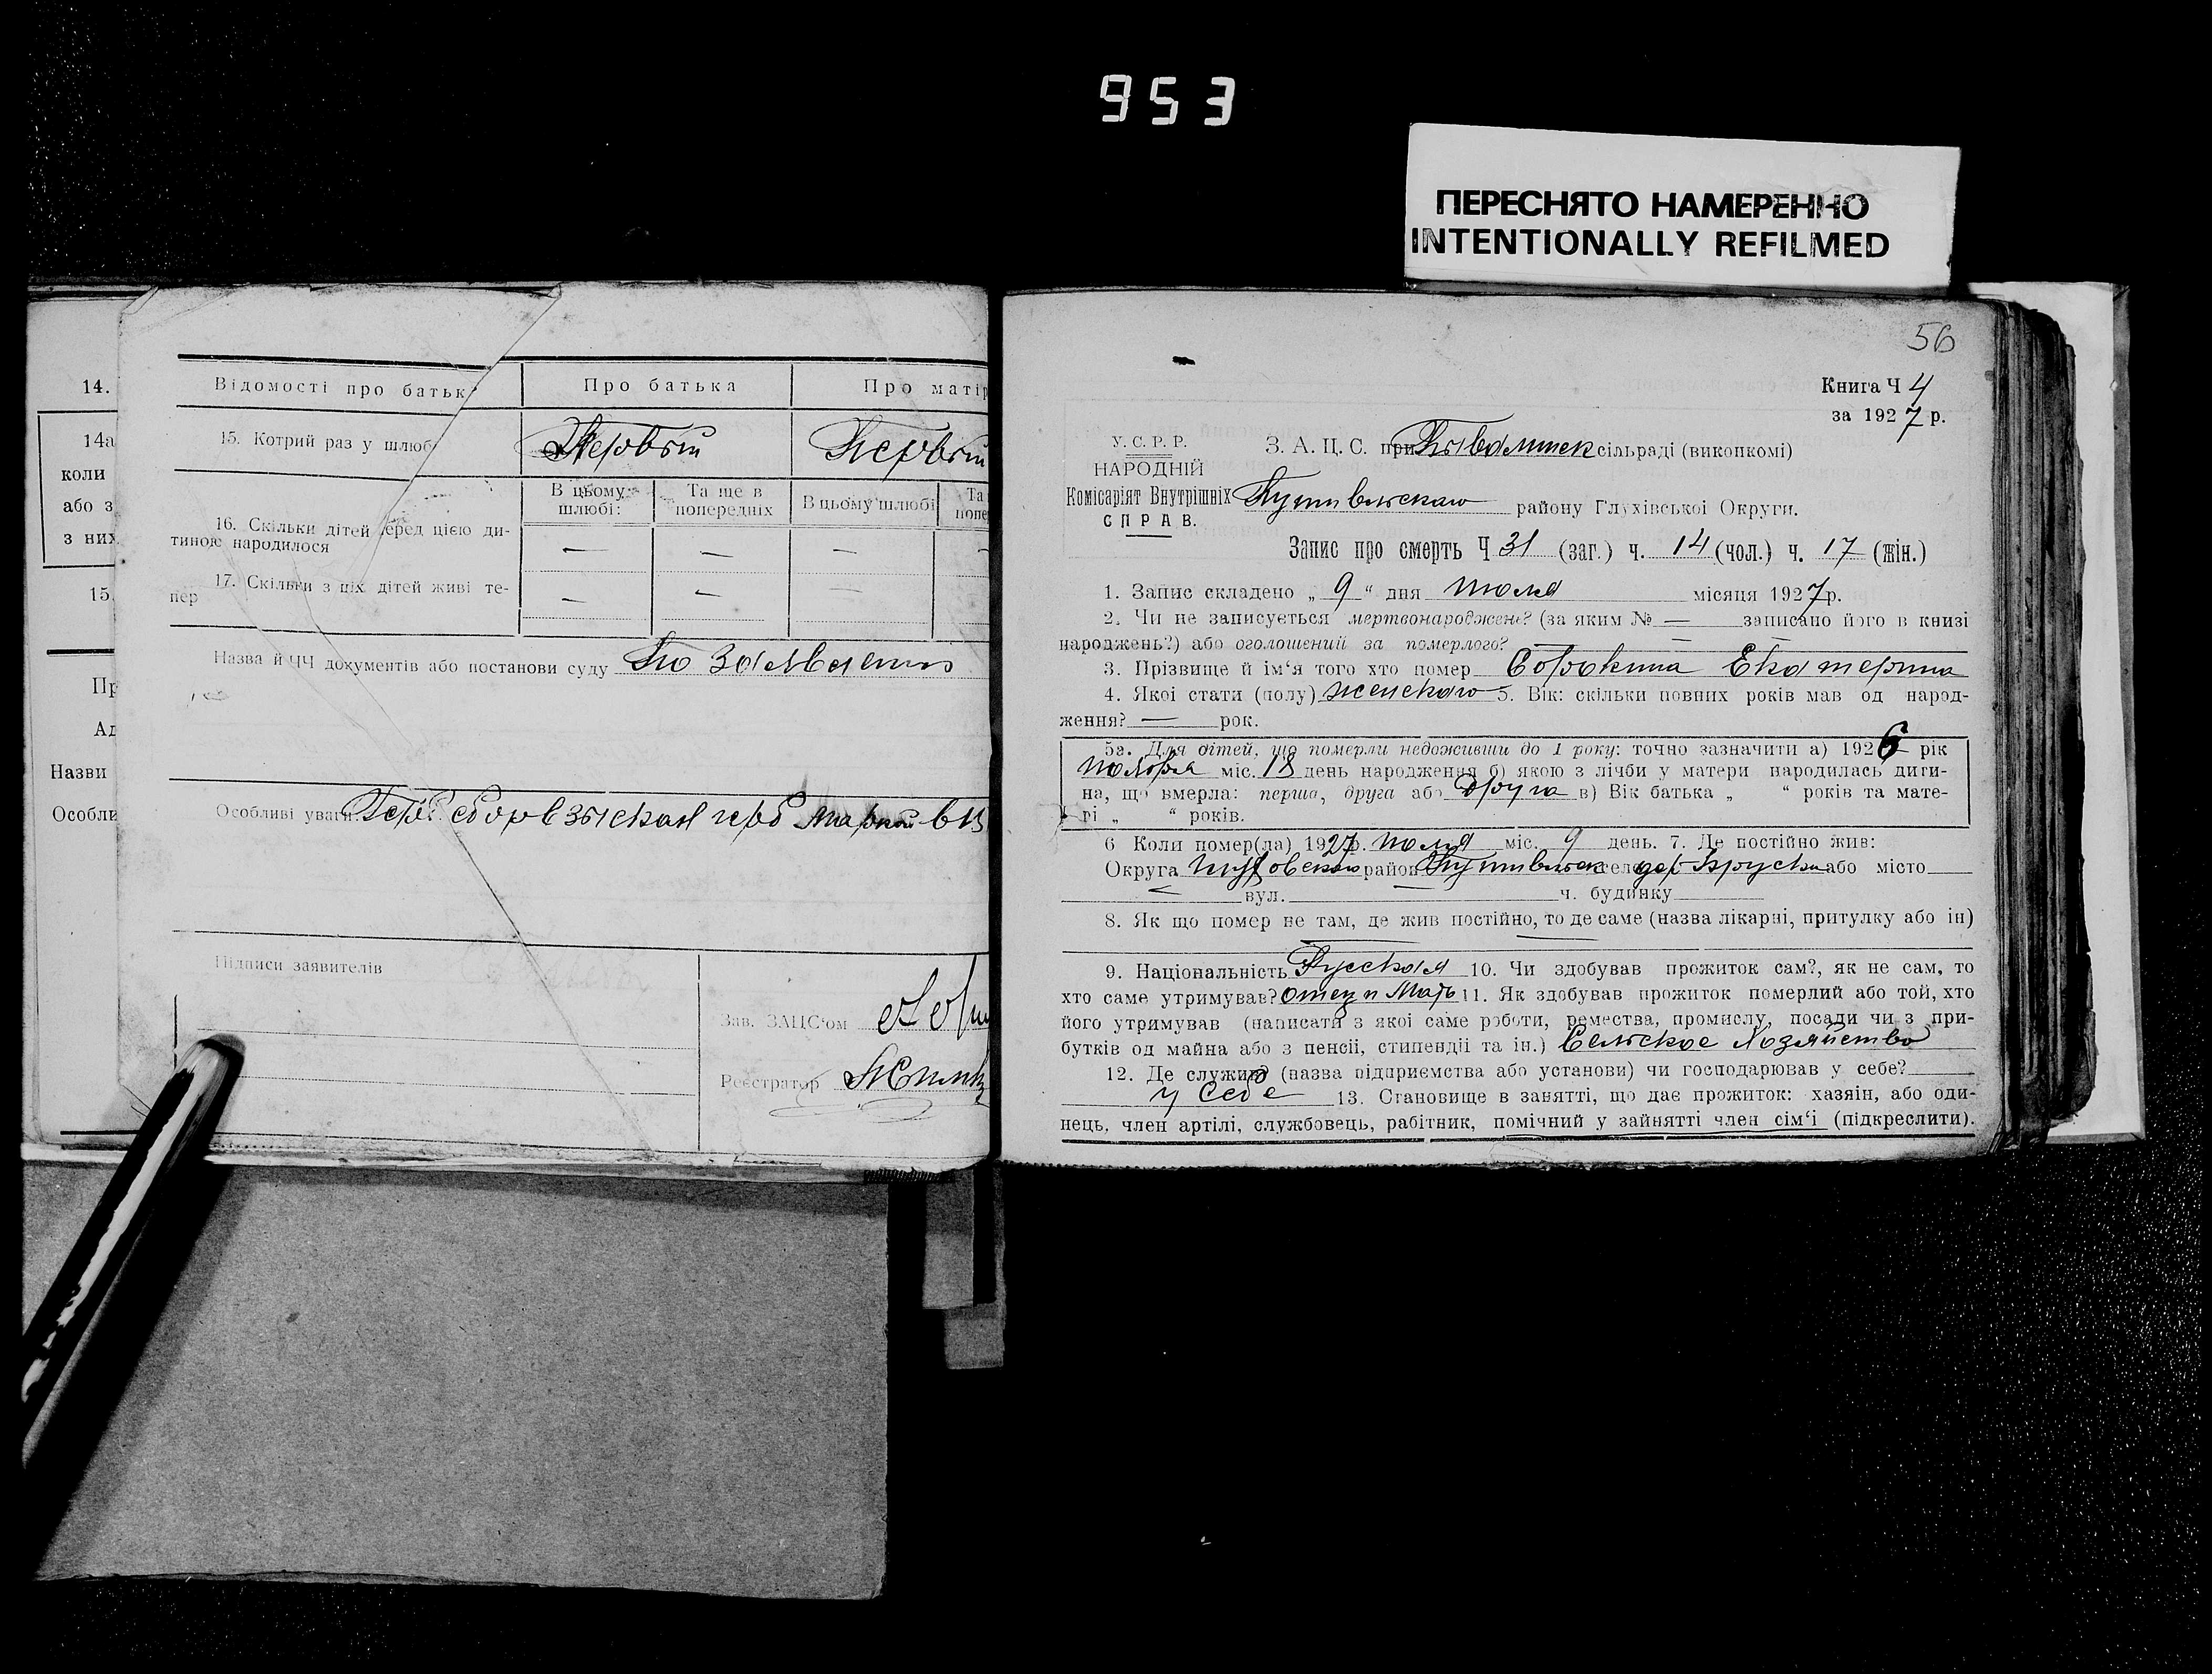 953
ПЕРЕСНЯТО НАМЕРЕННО
INTENTIONALLY REFILMED
14.
14а
коли
або з
з них
15.
Пр
Ад
Назви
Особли
Відомості про батьк
Про батька
Про матір
15. Котрий раз у шлюб
Первый
Первый
16. Скільки дітей перед цією ди-
тиною народилося
В цьому шлюбі:
Та ще в попередніх
В цьому шлюбі
Та
попе
— — — —
17. Скільки з ціх дітей живі те-
пер
— — —
Назва й ЧЧ документів або постанови суду По
Особливі уваги
Підписи заявителів
Зав. ЗАЦС'ом
Реєстратор
56
Книга Ч 4
за 1927 р.
У. С. Р. Р.
НАРОДНІЙ
Комісаріят Внутрішніх
СПРАВ.
З. А. Ц. С. при сільраді (виконкомі)
Путивльскаго району Глухівської Округи.
Запис про смерть Ч 31 (заг.) ч. 14 (чол.) ч. 17 (жін.)
1. Запис складено „ 9 “ дня июля місяця 1927 р.
2. Чи не записується мертвонароджене? (за яким № — записано його в книзі
народжень?) або оголошений за померлого? —
3. Прізвище й ім‘я того хто помер Сорокина Екатерина
4. Якої стати (полу) женскаго 5. Вік: скільки повних років мав од народ-
ження? — рок.
5а. Для дітей, що померли недоживши до 1 року: точно зазначити а) 1926 рік
міс. 18 день народження б) якою з лічби у матери народилась дити-
на, що вмерла: перша, друга або друга в) Вік батька „ “ років та мате-
рі „ “ років.
6 Коли помер(ла) 1927 р. июля міс. 9 день. 7. Де постійно жив:
Округа район Путивльск село або місто
вул. — ч. будинку
8. Як що помер не там, де жив постійно, то де саме (назва лікарні, притулку або ін)
9. Національність Русская 10. Чи здобував прожиток сам?, як не сам, то
хто саме утримував? отец и Мать 11. Як здобував прожиток померлий або той, хто
його утримував (написати з якої саме роботи, ремества, промислу, посади чи з при-
бутків од майна або з пенсії, стипендії та ін.) Сельское Хозяйство
12. Де служив (назва підприємства або установи) чи господарював у себе?
у себе 13. Становище в занятті, що дає прожиток: хазяїн, або оди-
нець, член артілі, службовець, рабітник, помічний у зайнятті член сім‘ї (підкреслити).